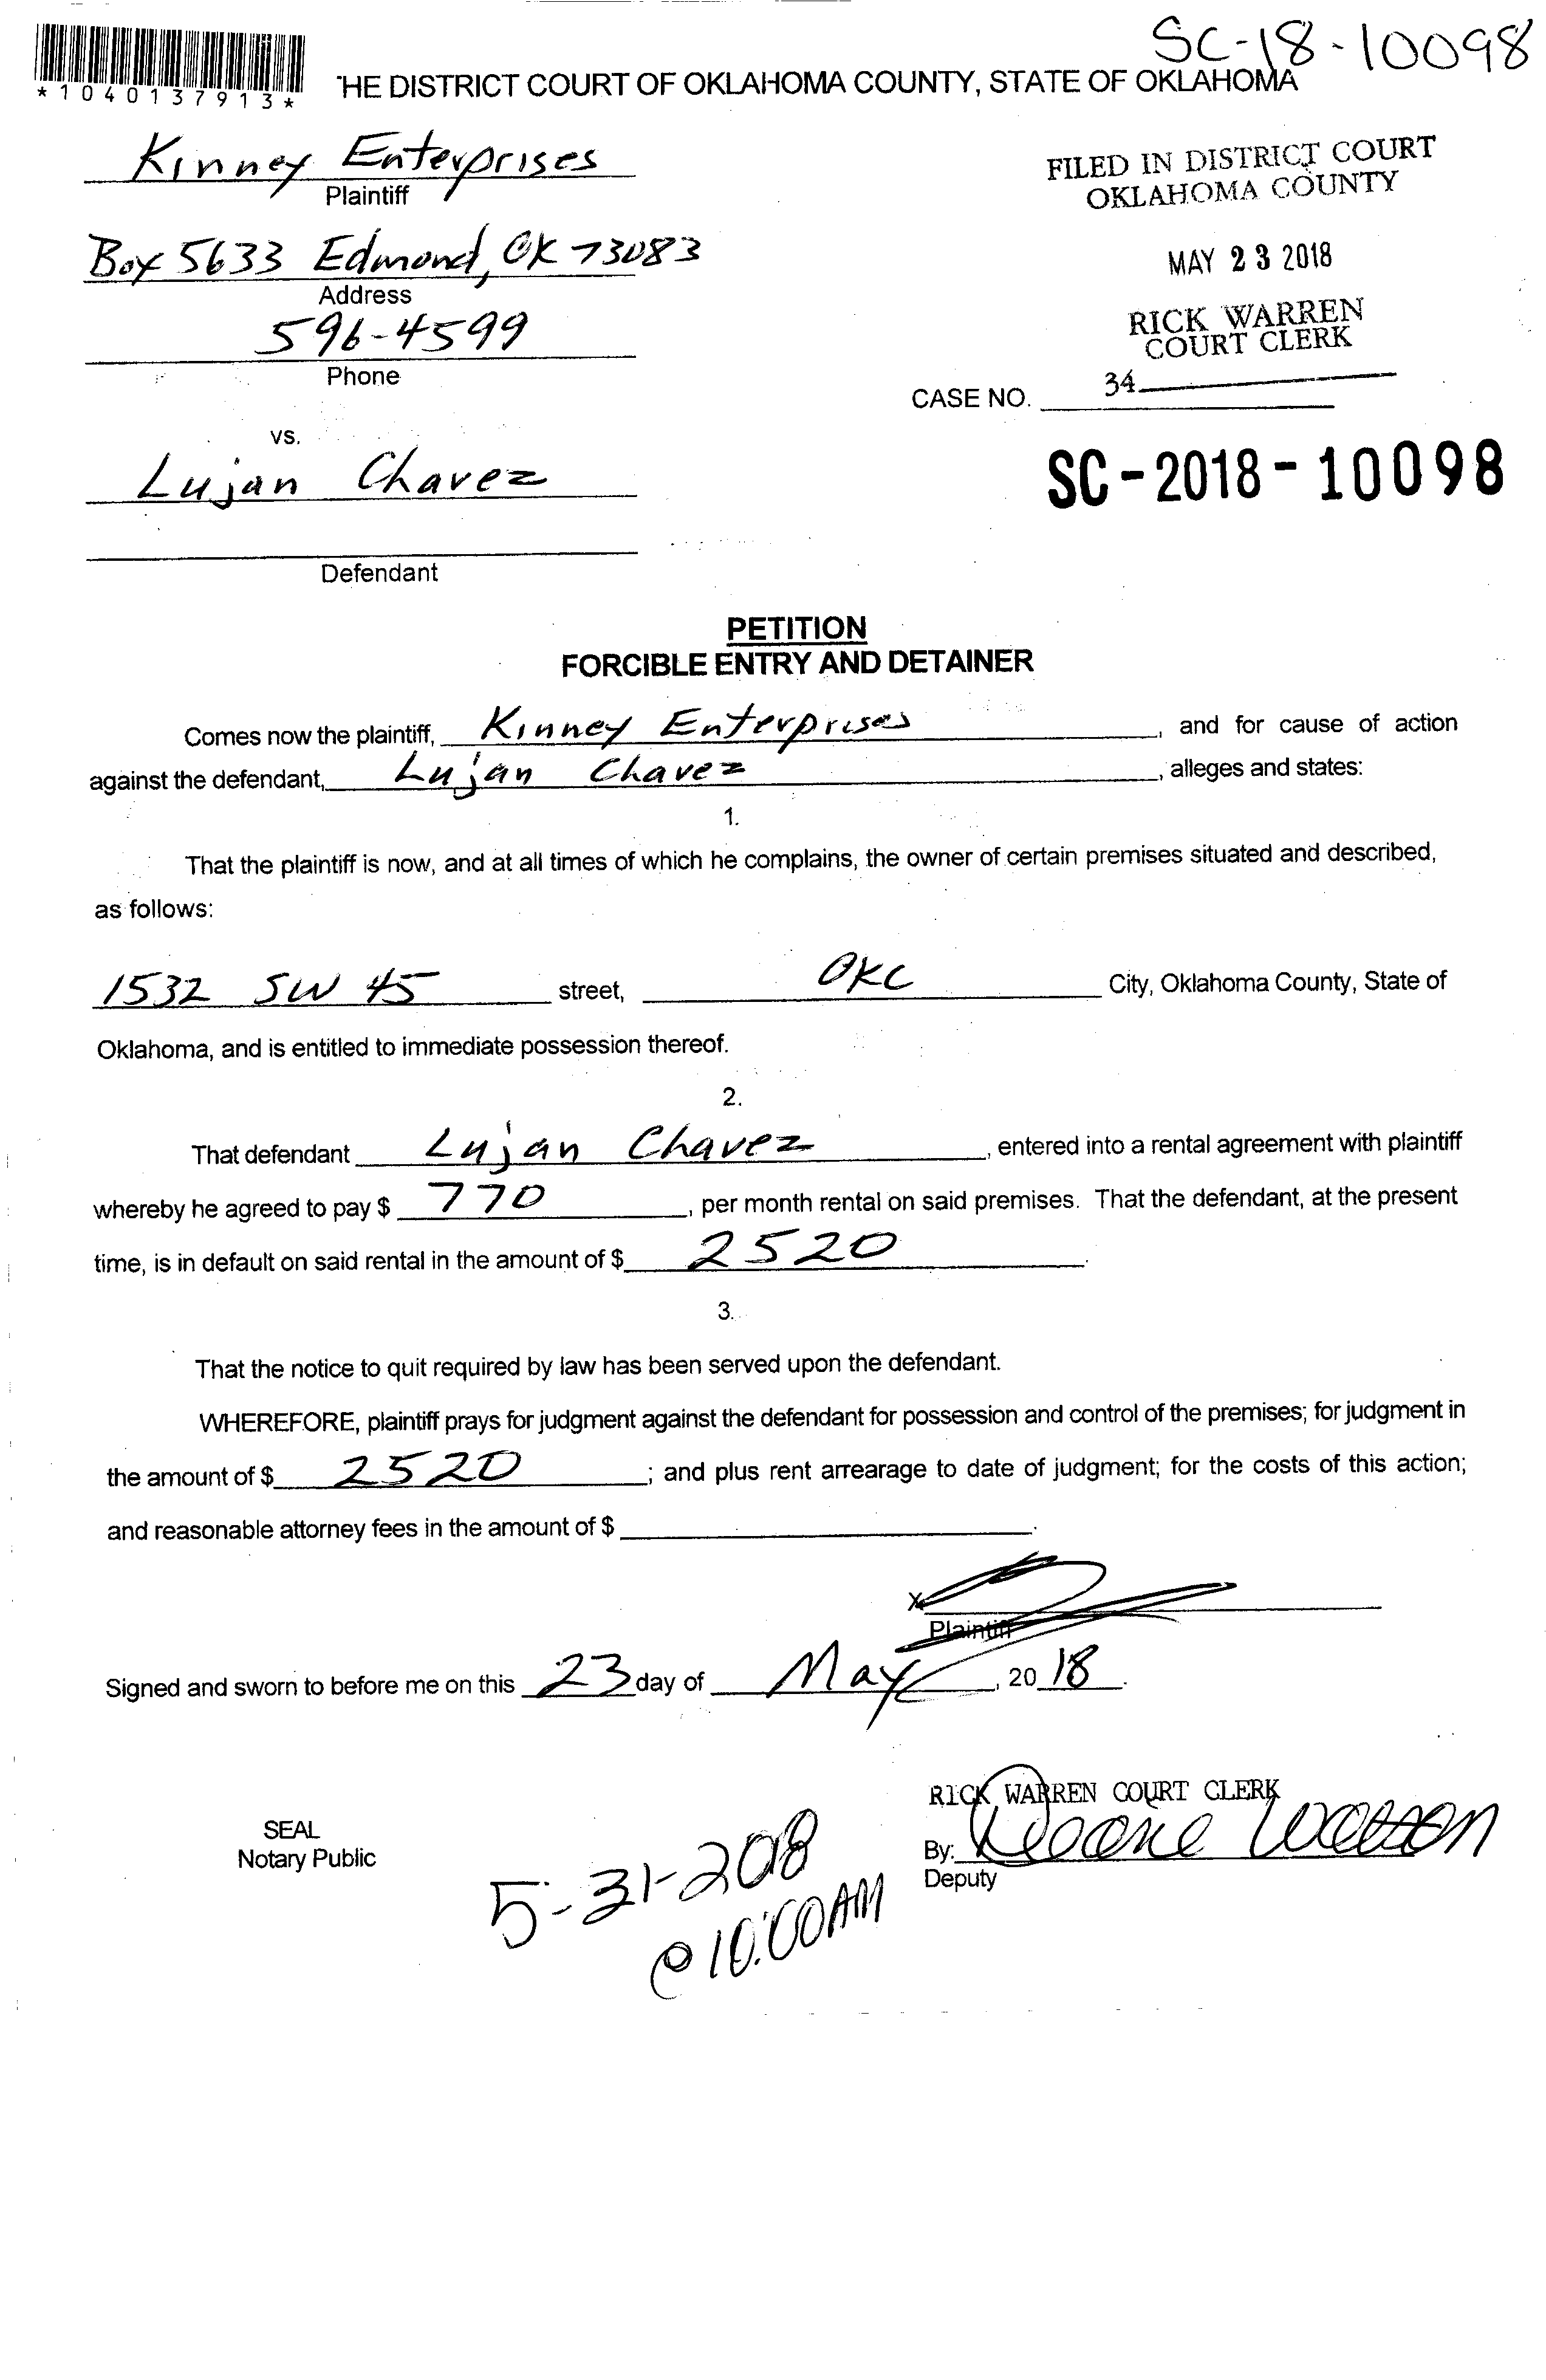 SC-18-10098
*1040137913*
HE DISTRICT COURT OF OKLAHOMA COUNTY, STATE OF OKLAHOMA
Kinney Enterprises
Plaintiff
FILED IN DISTRICT COURT
OKLAHOMA COUNTY
Box 5633 Edmond, OK 73083
Address
MAY 23 2018
596-4599
Phone
RICK WARREN
COURT CLERK
34
CASE NO.
vs.
Lujan Chavez
SC-2018-10098
Defendant
PETITION
FORCIBLE ENTRY AND DETAINER
Comes now the plaintiff, Kinney Enterprises, and for cause of action
against the defendant, Lujan Chavez, alleges and states:
1.
That the plaintiff is now, and at all times of which he complains, the owner of certain premises situated and described,
as follows:
1532 SW 45 street, OKC City, Oklahoma County, State of
Oklahoma, and is entitled to immediate possession thereof.
2.
That defendant Lujan Chavez, entered into a rental agreement with plaintiff
whereby he agreed to pay $ 770, per month rental on said premises. That the defendant, at the present
time, is in default on said rental in the amount of $ 2520.
3.
That the notice to quit required by law has been served upon the defendant.
WHEREFORE, plaintiff prays for judgment against the defendant for possession and control of the premises; for judgment in
the amount of $ 2520; and plus rent arrearage to date of judgment; for the costs of this action;
and reasonable attorney fees in the amount of $ .
X
Plaintiff
Signed and sworn to before me on this 23 day of May, 2018.
RICK WARREN COURT CLERK
SEAL
Notary Public
By: Watson
Deputy
5-31-208
@ 10:00AM